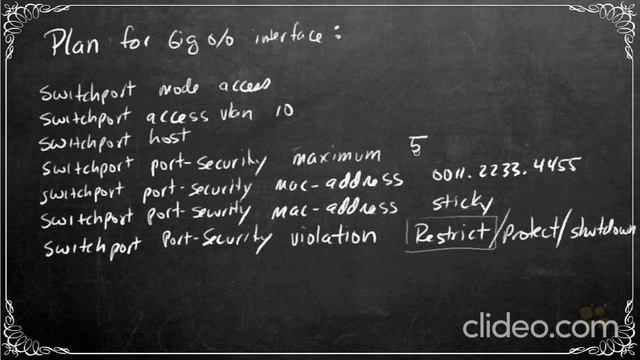 Plan for Gig 0/0 interface:
switchport mode access
switchport access vlan 10
switchport host
switchport port-security maximum 5
switchport port-security mac-address 0011.2233.4455
switchport port-security mac-address sticky
switchport port-security violation Restrict/protect/shutdown
clideo.com